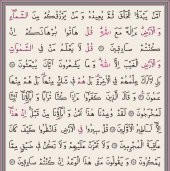 أَمَّن يَبْدَؤُا الْخَلْقَ ثُمَّ يُعِيدُهُ وَمَن يَرْزُقُكُم مِّنَ السَّمَاءِ
وَالْأَرْضِ أَإِلَٰهٌ مَّعَ اللَّهِ قُلْ هَاتُوا بُرْهَانَكُمْ إِن
كُنتُمْ صَادِقِينَ قُل لَّا يَعْلَمُ مَن فِي السَّمَاوَاتِ
وَالْأَرْضِ الْغَيْبَ إِلَّا اللَّهُ وَمَا يَشْعُرُونَ أَيَّانَ يُبْعَثُونَ
بَلِ ادَّارَكَ عِلْمُهُمْ فِي الْآخِرَةِ بَلْ هُمْ فِي شَكٍّ مِّنْهَا بَلْ هُم مِّنْهَا
عَمُونَ وَقَالَ الَّذِينَ كَفَرُوا أَإِذَا كُنَّا تُرَابًا وَآبَاؤُنَا أَئِنَّا
لَمُخْرَجُونَ لَقَدْ وُعِدْنَا هَٰذَا نَحْنُ وَآبَاؤُنَا مِن قَبْلُ إِنْ هَٰذَا
إِلَّا أَسَاطِيرُ الْأَوَّلِينَ قُلْ سِيرُوا فِي الْأَرْضِ فَانظُرُوا كَيْفَ كَانَ
عَاقِبَةُ الْمُجْرِمِينَ وَلَا تَحْزَنْ عَلَيْهِمْ وَلَا تَكُن فِي ضَيْقٍ مِّمَّا
يَمْكُرُونَ وَيَقُولُونَ مَتَىٰ هَٰذَا الْوَعْدُ إِن كُنتُمْ صَادِقِينَ